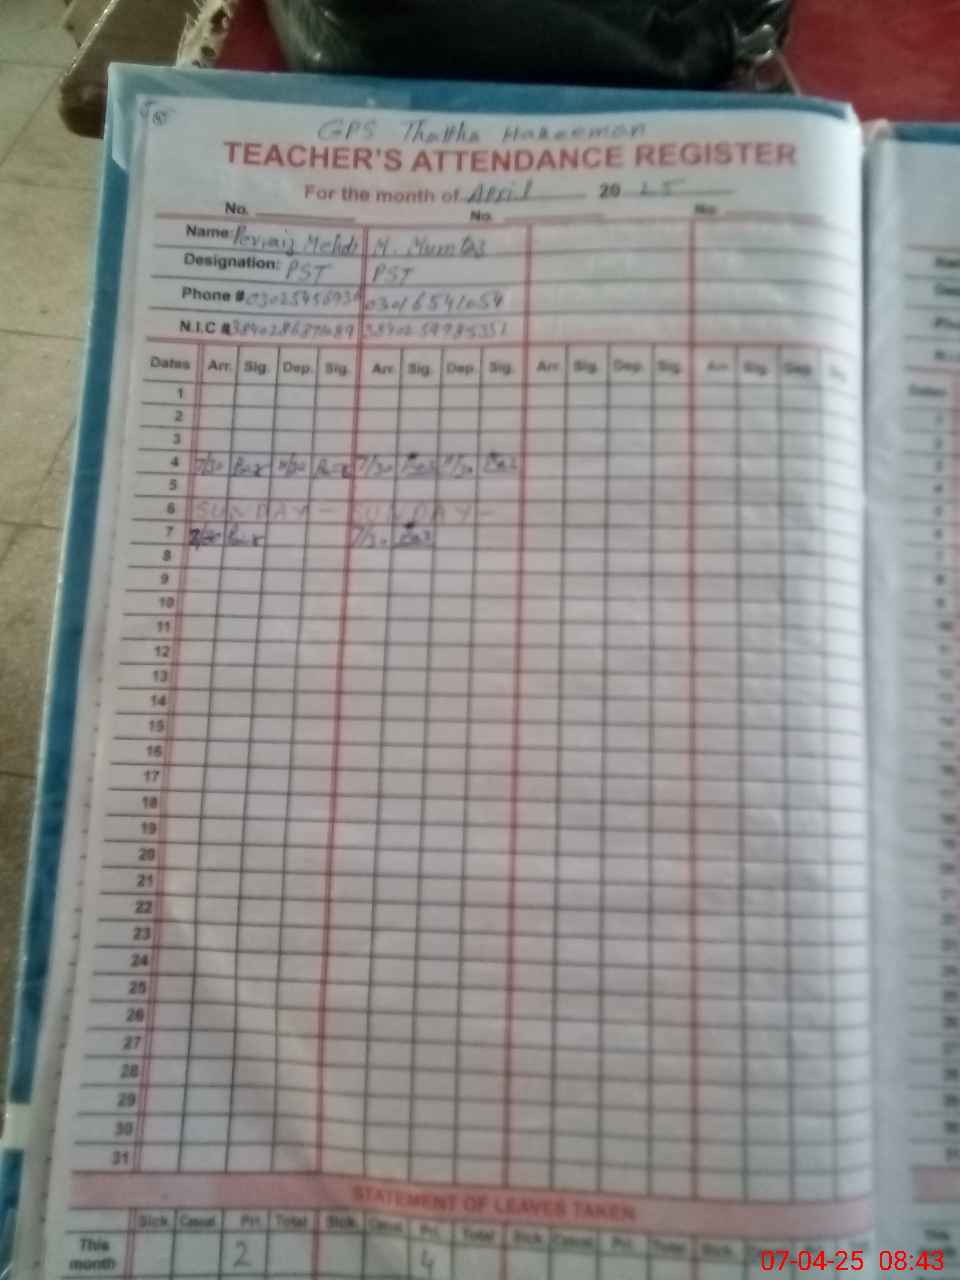 GPS Thattha Hakeeman
TEACHER'S ATTENDANCE REGISTER
For the month of April 20 25
No. No. No.
Name: Pervaiz Mehdi M. Mumtaz
Designation: PST PST
Phone # 03016541054
N.I.C #
Dates Arr. Sig. Dep. Sig. Arr. Sig. Dep. Sig. Arr. Sig. Dep. Sig. Arr. Sig. Dep. Sig.
1
2
3
4 7/30 7/30
5
6 SUNDAY - SUNDAY -
7 7/30
8
9
10
11
12
13
14
15
16
17
18
19
20
21
22
23
24
25
26
27
28
29
30
31
STATEMENT OF LEAVES TAKEN
Sick. Casual Pri. Total Sick. Casual Pri. Total Sick. Casual Pri. Total Sick.
This month 2 4
07-04-25 08:43